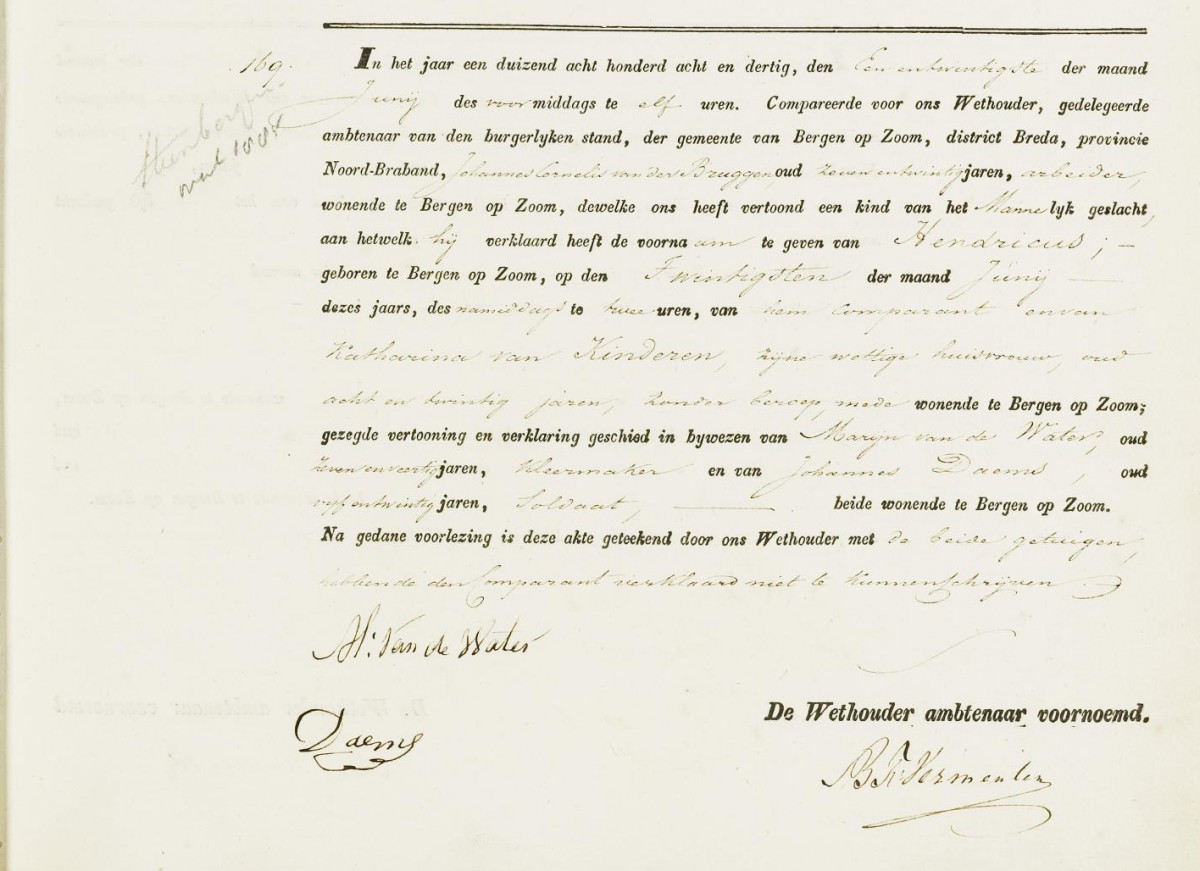 169.
In het jaar een duizend acht honderd acht en dertig, den Een en twintigste der maand
Junij des voor middags te elf uren. Compareerde voor ons Wethouder, gedelegeerde
ambtenaar van den burgerlyken stand, der gemeente van Bergen op Zoom, district Breda, provincie
Noord-Braband, Johannes Cornelis van der Bruggen, oud zeven en twintig jaren, arbeider,
wonende te Bergen op Zoom, dewelke ons heeft vertoond een kind van het Manne lyk geslacht,
aan hetwelk hij verklaard heeft de voorna am te geven van Hendricus; —
geboren te Bergen op Zoom, op den Twintigsten der maand Junij —
dezes jaars, des namiddags te twee uren, van hem Comparant en van
Katharina van Kinderen, zijne wettige huisvrouw, oud
acht en twintig jaren, zonder beroep, mede wonende te Bergen op Zoom;
gezegde vertooning en verklaring geschied in bywezen van Marijn van de Water, oud
zeven en veertig jaren, Kleermaker en van Johannes Daems, oud
vyf en twintig jaren, Soldaat, — beide wonende te Bergen op Zoom.
Na gedane voorlezing is deze akte geteekend door ons Wethouder met de beide getuigen,
hebbende den Comparant verklaard niet te kunnen schrijven.
Steenbergen
M. Van de Water
De Wethouder ambtenaar voornoemd.
Daems
Vermeulen